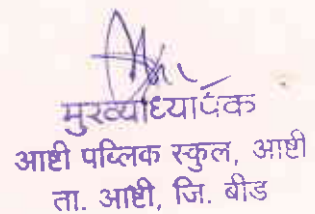 मुख्याध्यापक
आष्टी पब्लिक स्कुल, आष्टी
ता. आष्टी, जि. बीड